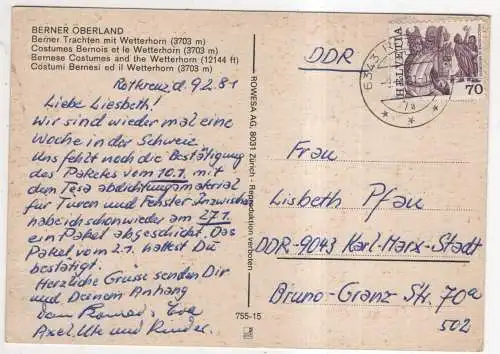 BERNER OBERLAND
Berner Trachten mit Wetterhorn (3703 m)
Costumes Bernois et le Wetterhorn (3703 m)
Bernese Costumes and the Wetterhorn (12144 ft)
Costumi Bernesi ed il Wetterhorn (3703 m)
Rotkreuz d. 9.2.81
Liebe Liesbeth!
Wir sind wieder mal eine
Woche in der Schweiz.
Uns fehlt noch die Bestätigung
des Paketes vom 10.1. mit
dem Tesa abdichtungsmaterial
für Türen und Fenster. Inzwischen
habe ich schon wieder am 27.1.
ein Paket abgeschickt. Das
Paket vom 2.1. hattest Du
bestätigt.
Herzliche Grüsse senden Dir
und Deinem Anhang
Eva
Axel, Ute und
ROWESA AG, 8031 Zürich - Reproduktion verboten
755-15
DDR
6343
HELVETIA
70
Frau
Lisbeth Pfau
DDR-9043 Karl-Marx-Stadt
Bruno-Granz-Str. 70a
502